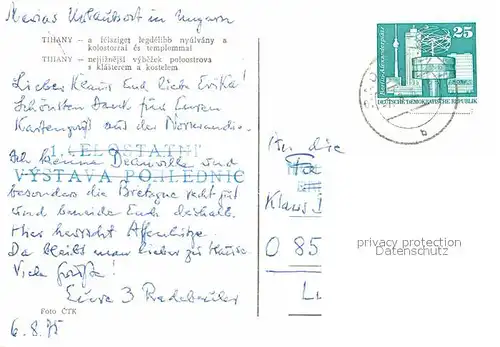 Marias Urlaubsort in Ungarn
TIHANY – a félsziget legdélibb nyúlvány a
kolostorral és templommal
TIHANY – nejjižnější výběžek poloostrova
s klášterem a kostelem
Lieber Klaus und liebe Erika!
Schönsten Dank für Euren
Kartengruß aus der Normandie.
Ich kenne Deauville und
1. CELOSTÁTNÍ
VÝSTAVA POHLEDNIC
besonders die Bretagne recht gut
und beneide Euch deshalb.
Hier herrscht Affenhitze.
Da bleibt man lieber zu Hause
Viele Grüße!
Eure 3 Radebeuler
Foto ČTK
6.8.75
25
Berlin, Alexanderplatz
DEUTSCHE DEMOKRATISCHE REPUBLIK
b
An die
Fa
Klaus
O 85
L
privacy protection
Datenschutz